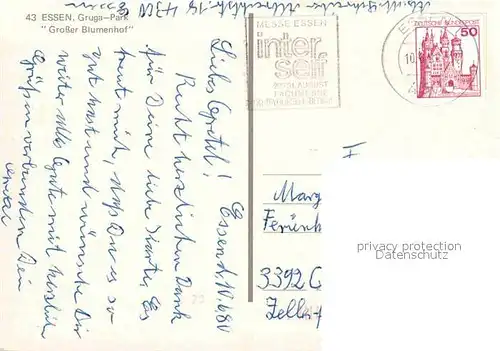 43 ESSEN, Gruga-Park
"Großer Blumenhof"
4300
Essen
MESSE ESSEN
inter
self
DEUTSCHE BUNDESPOST
50
Essen, d. 10.6.80
Liebe Gretel!
Recht herzlichen Dank
für Deine liebe Karte. Es
freut mich, daß Du es so
gut hast und wünsche Dir
weiter alles Gute mit herzlich
Grüßen verbunden Dein
I
Marg
Ferienh
3392 C
Zeller
privacy protection
Datenschutz